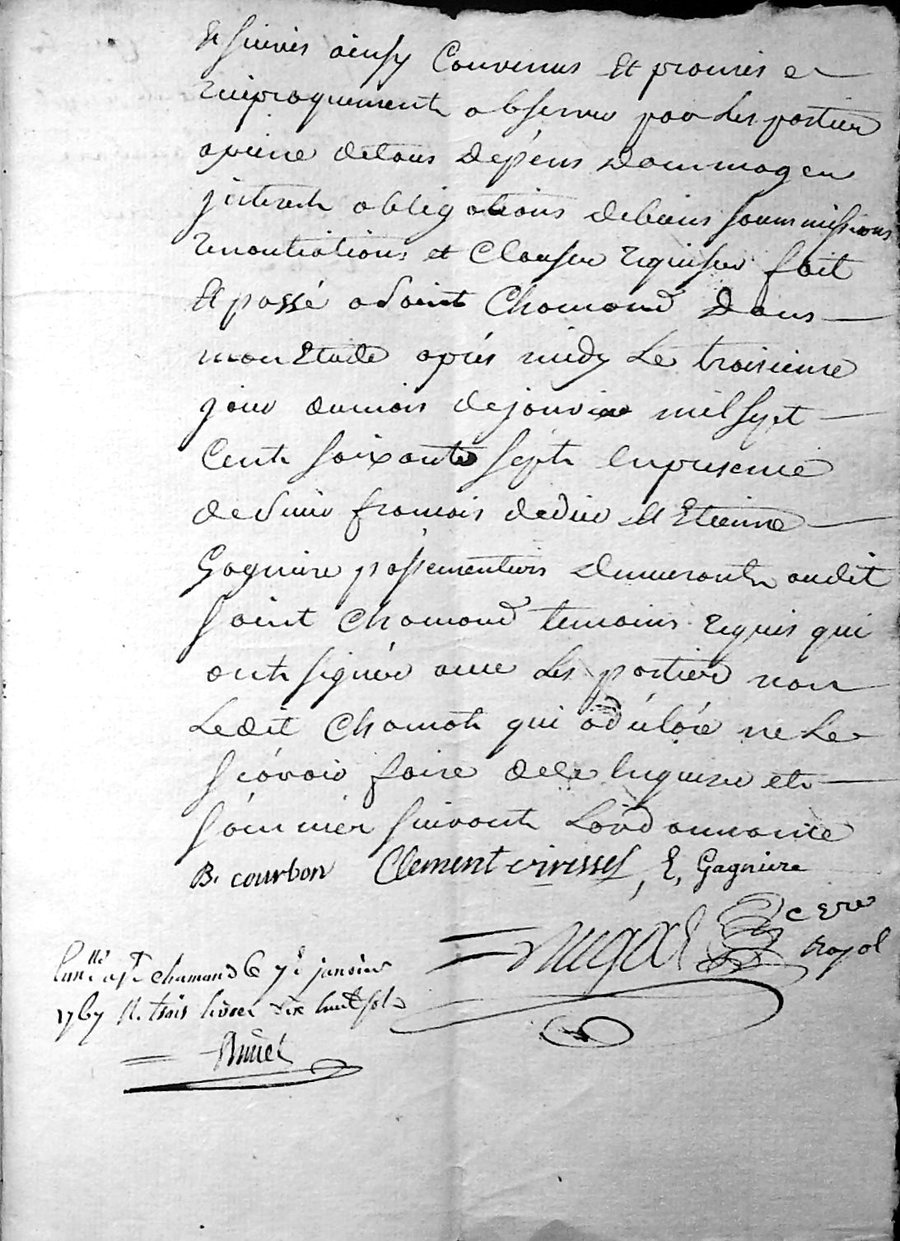 Et suivies ainsy Convenus Et promis et
reciproquement observer par Les parties
apeine detous depens Dommages
interests obligations debiens soummissions
renontiations et Clauses requises fait
Et passé a Saint Chamond Dans
mon Etude aprés midy Le troisieme
jour dumois dejanvier mil sept
Cent soixante sept en presence
de Sieur francois dedieu Et Etienne
Gagniere passementiers demeurants audit
Saint Chamond temoins requis qui
ont signée avec Les parties non
Ledit Chamot qui a déclaré ne Le
sçavoir faire dece enquis et
sommer suivant Lordonnance
B. courbon Clement E. Gagniere
Nre
Royal
st chamand janvier
1767 R. trois livres dix huit sols